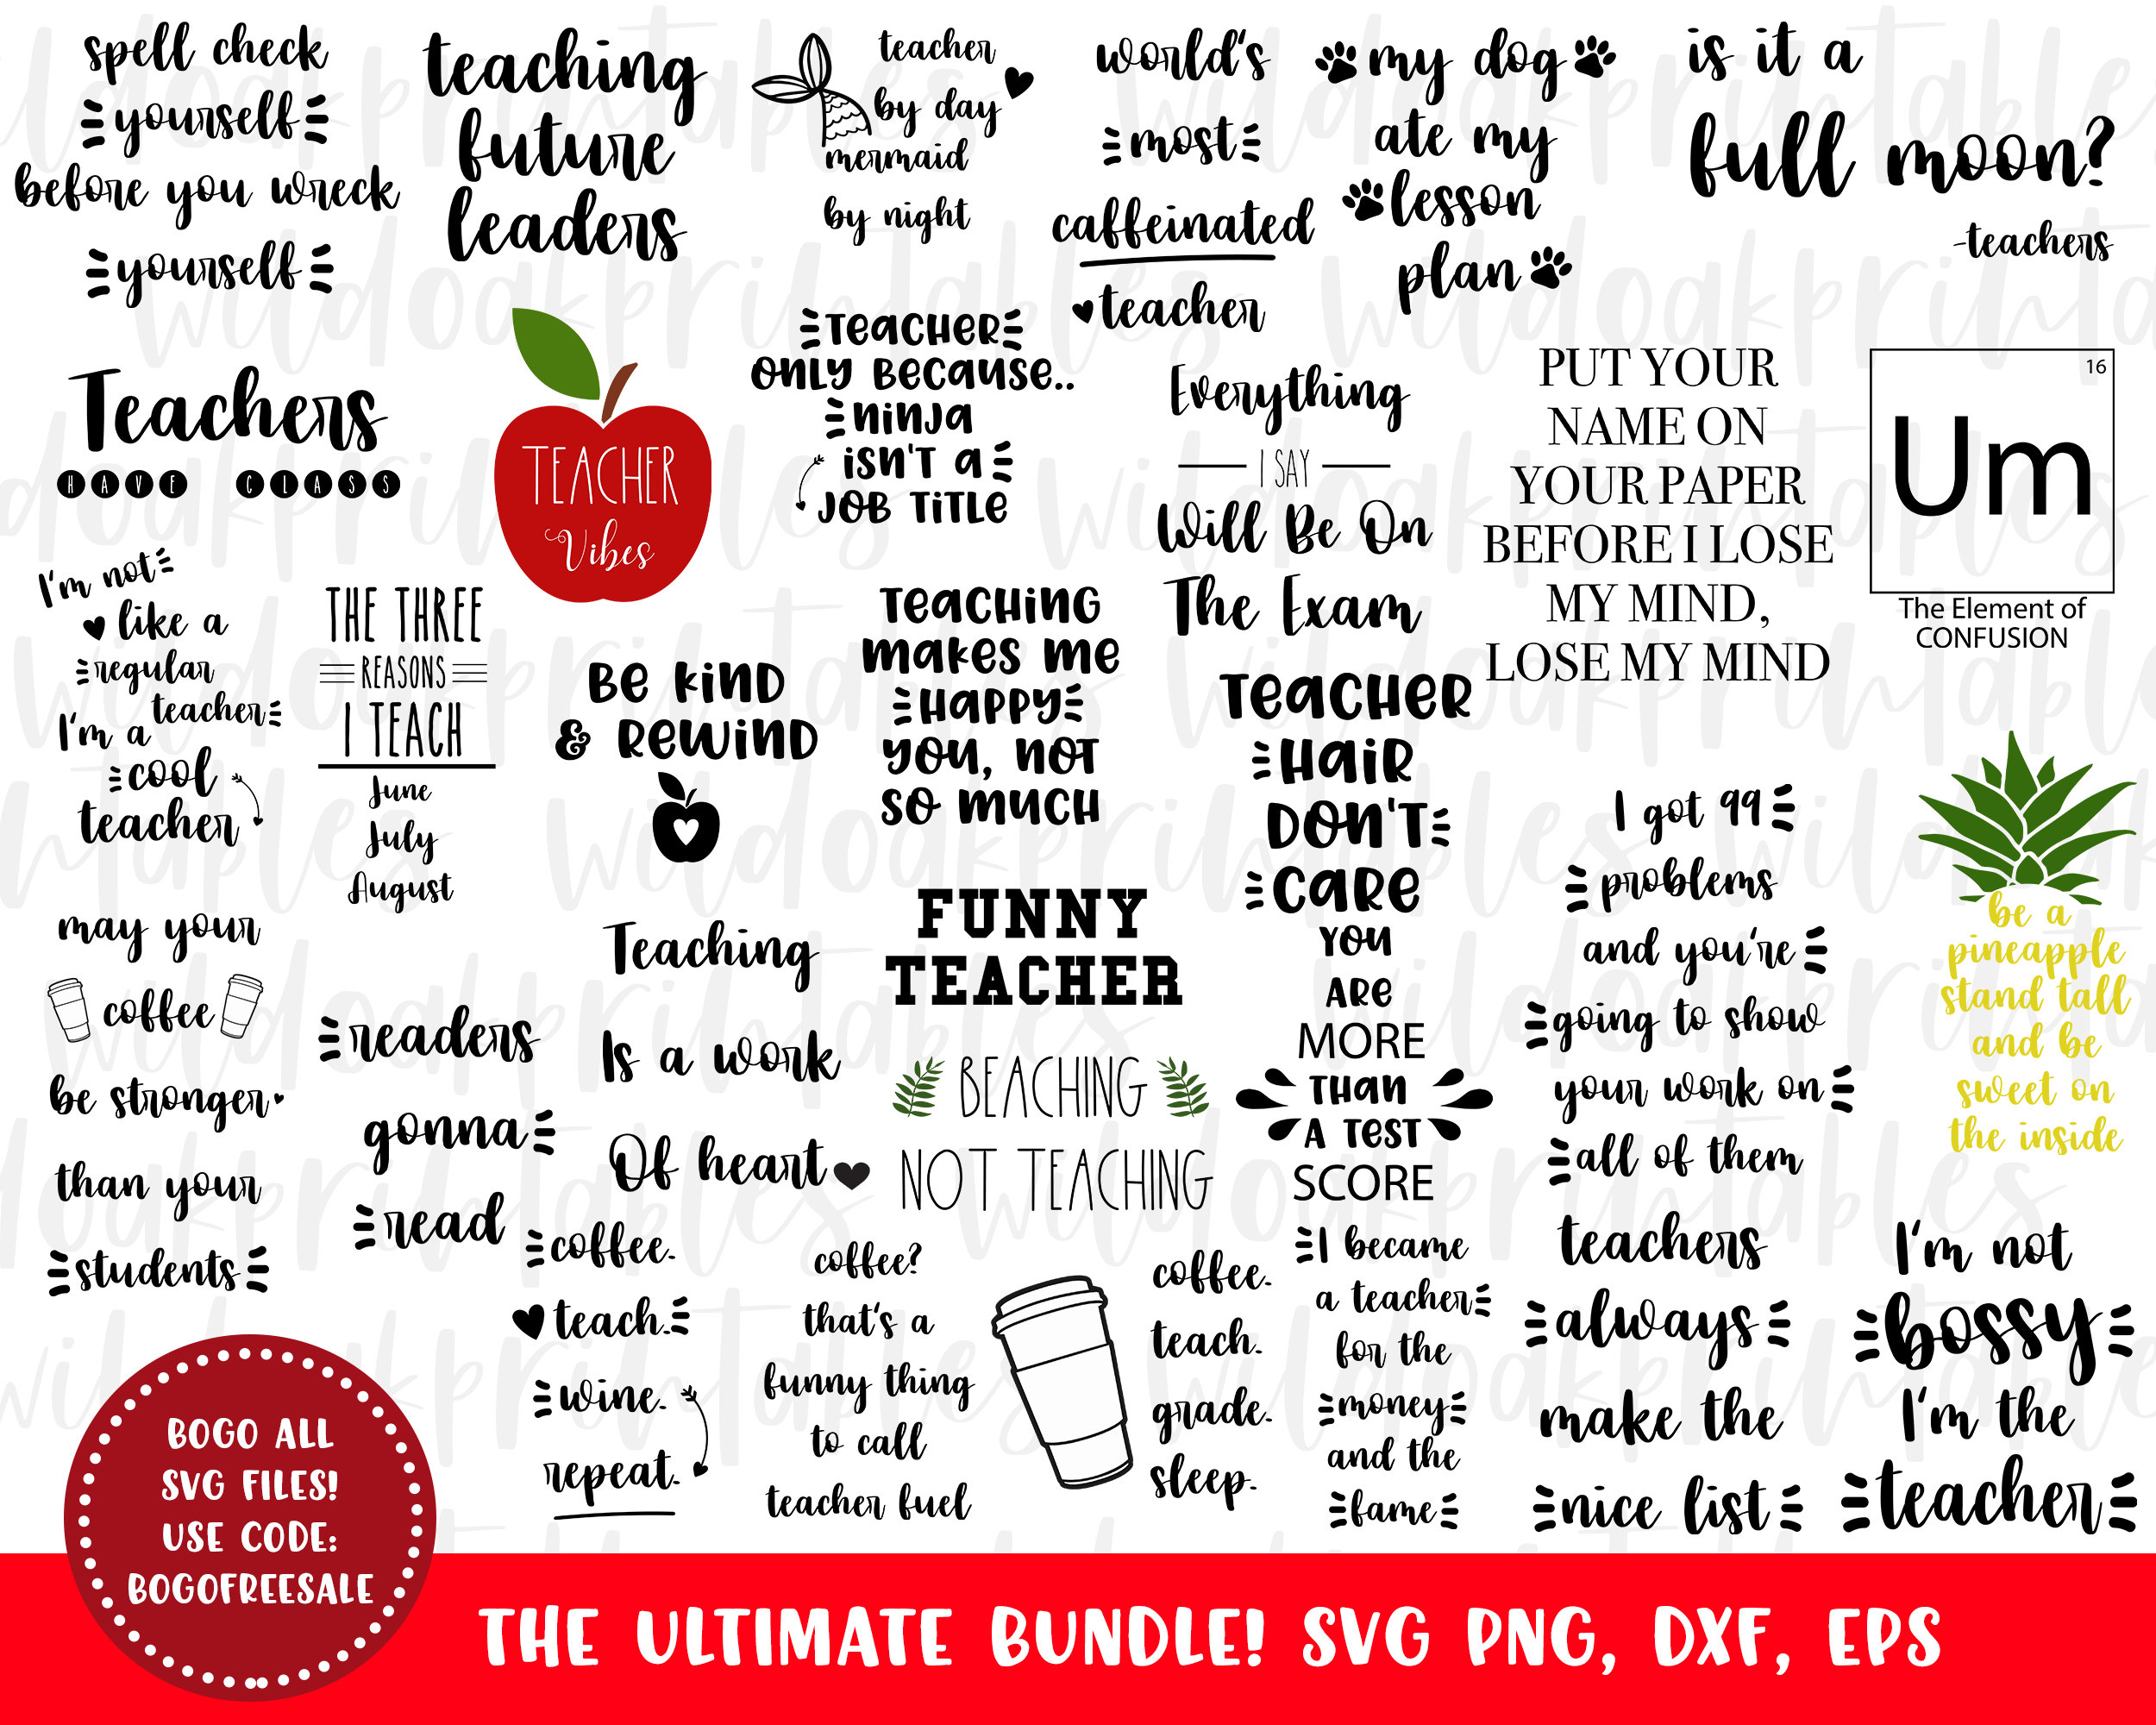 spell check
yourself
before you wreck
yourself
teaching
future
leaders
teacher
by day
mermaid
by night
world's
most
caffeinated
teacher
my dog
ate my
lesson
plan
is it a
full moon?
-teachers
Teachers
HAVE CLASS
TEACHER
Vibes
Teacher
only because..
ninja
isn't a
job title
Everything
I SAY
Will Be On
The Exam
PUT YOUR
NAME ON
YOUR PAPER
BEFORE I LOSE
MY MIND,
LOSE MY MIND
16
Um
The Element of
CONFUSION
I'm not
like a
regular
teacher
I'm a
cool
teacher
THE THREE
REASONS
I TEACH
June
July
August
Be kind
& rewind
Teaching
makes me
happy
you, not
so much
Teacher
Hair
Don't
Care
I got 99
problems
and you're
going to show
your work on
all of them
be a
pineapple
stand tall
and be
sweet on
the inside
may your
coffee
be stronger
than your
students
readers
gonna
read
Teaching
Is a work
Of heart
FUNNY
TEACHER
BEACHING
NOT TEACHING
You
Are
MORE
Than
A Test
SCORE
coffee.
teach.
wine.
repeat.
coffee?
that's a
funny thing
to call
teacher fuel
coffee.
teach.
grade.
sleep.
I became
a teacher
for the
money
and the
fame
teachers
always
make the
nice list
I'm not
bossy
I'm the
teacher
BOGO ALL
SVG FILES!
USE CODE:
BOGOFREESALE
THE ULTIMATE BUNDLE! SVG PNG, DXF, EPS
wildoakprintables